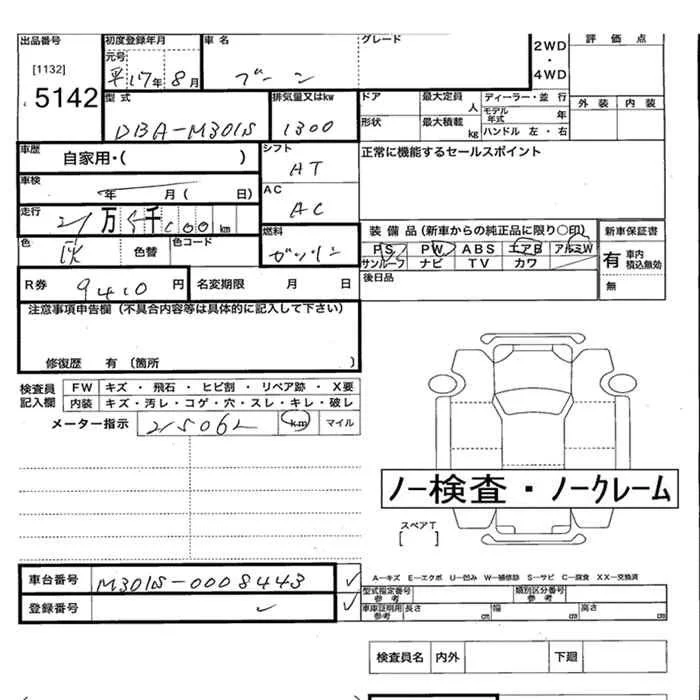 出品番号 初度登録年月 車名 グレード 2WD・4WD 評価点
[1132] 元号
5142 平17年8月 ブーン
外装 内装
型式 排気量又はkw ドア 最大定員 人 ディーラー・並行
DBA-M301S 1300 モデル年式 年
形状 最大積載 kg ハンドル 左・右
車歴 自家用・( ) シフト AT 正常に機能するセールスポイント
車検 年 月( 日) AC AC
走行 21万5千000km 燃料 ガソリン
装備品(新車からの純正品に限り○印) 新車保証書
色 灰 色替 色コード
PS PW ABS エアB アルミW 有 車内積込無効
サンルーフ ナビ TV カワ
R券 9410円 名変期限 月 日 後日品 無
注意事項申告欄(不具合内容等は具体的に記入して下さい)
修復歴 有〔箇所 〕
検査員記入欄 FW キズ・飛石・ヒビ割・リペア跡・X要
内装 キズ・汚レ・コゲ・穴・スレ・キレ・破レ
メーター指示 215062 km マイル
ノー検査・ノークレーム
スペアT
[ ]
車台番号 M301S-0008443 ✓
A－キズ E－エクボ U－凹み W－補修跡 S－サビ C－腐食 XX－交換済
型式指定番号参考 類別区分番号参考
登録番号 ✓ ✓ 車庫証明用参考 長さ cm 幅 cm 高さ cm
検査員名 内外 下廻